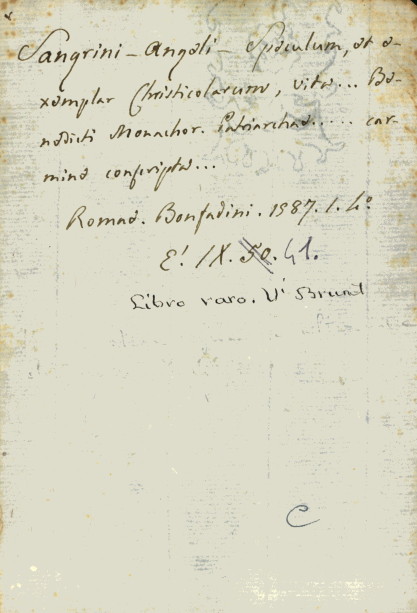 Sangrini - Angeli - Speculum, et e-
xemplar Christicolarum, vita... Be-
nedicti Monachor. Patriarchae..... car-
mine conscripta...
Romae. Bonfadini. 1587. 1. 4.º
E! IX. 50. 41.
Libro raro. Vi Brunet
C